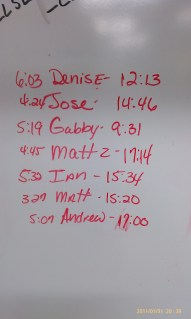 6:03 Denise - 12:13
4:24 Jose - 14:46
5:19 Gabby - 9:31
4:45 Matt Z - 17:14
5:30 Ian - 15:34
3:27 Matt - 15:20
5:07 Andrew - 17:00